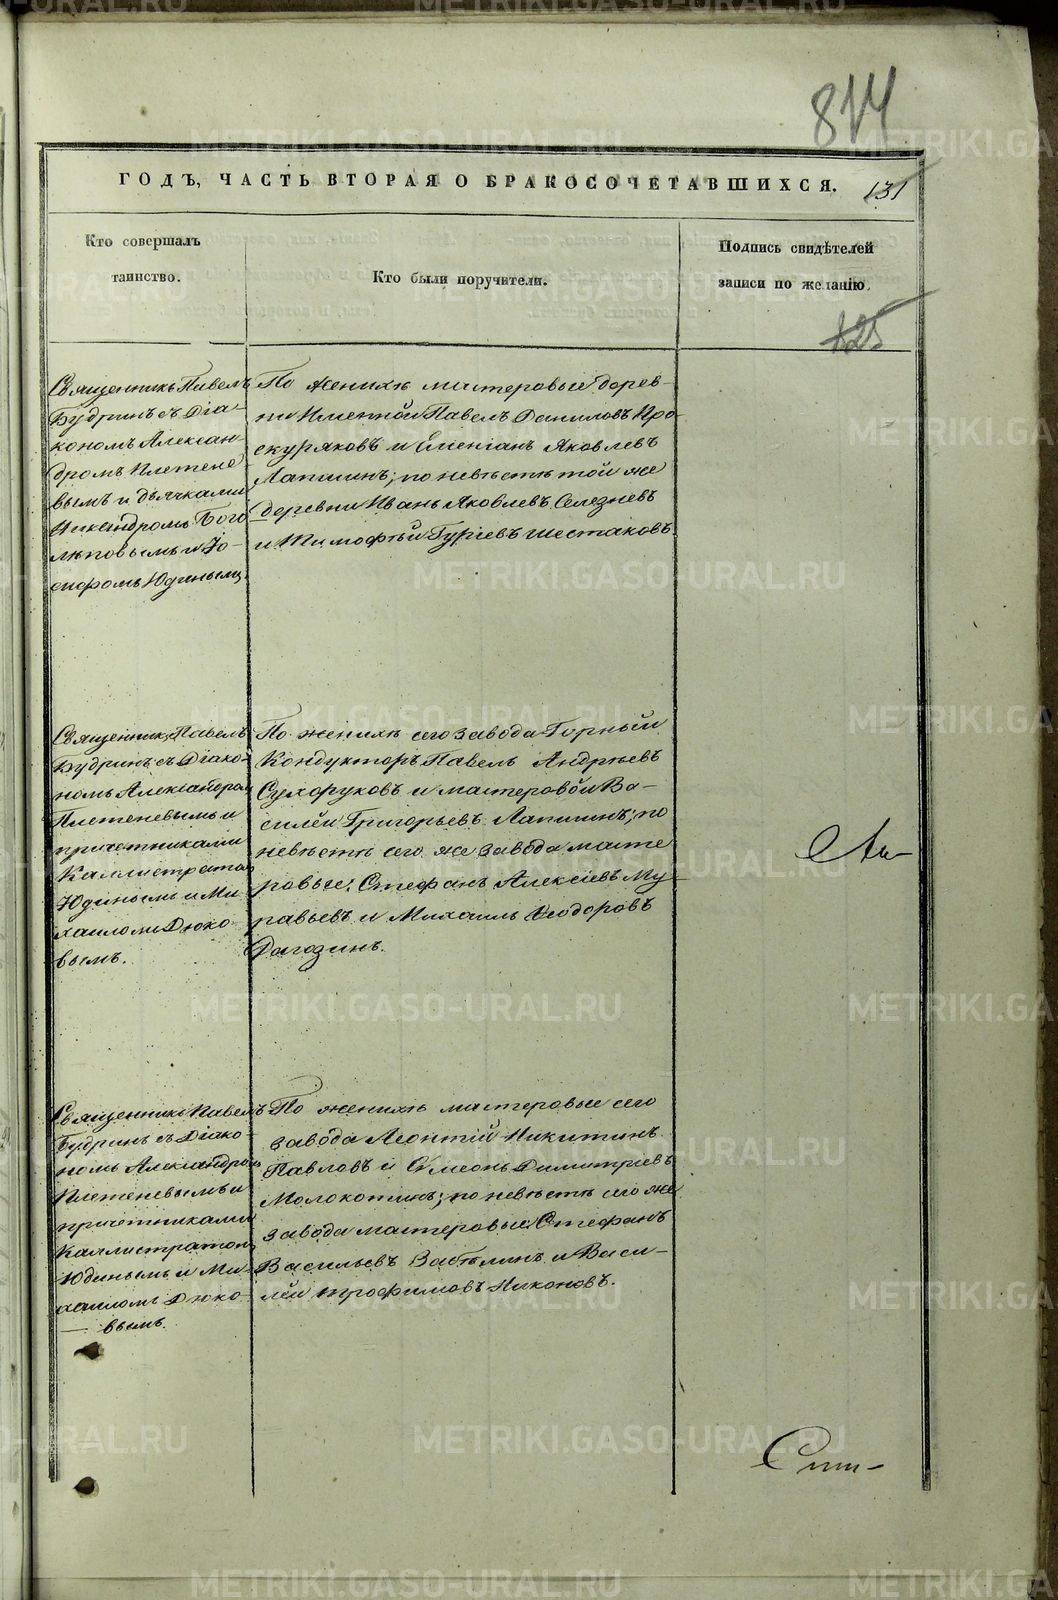 814
ГОДЪ, ЧАСТЬ ВТОРАЯ О БРАКОСОЧЕТАВШИХСЯ.
131
Кто совершалъ
таинство.
Кто были поручители.
Подпись свидѣтелей
записи по желанію.
125
Священникъ Павелъ
Будринъ съ Діа-
кономъ Алексан-
дромъ Плетене
вымъ и дьячками
Никандромъ Бого
лѣповымъ и Іо-
сифомъ Юдинымъ
По женихѣ мастеровые дерев-
ни Павелъ Даниловъ Про
скуряковъ и Емеліанъ Яковлевъ
Лапшинъ; по невѣстѣ той же
деревни Иванъ Яковлевъ Селезневъ
и Тимофѣй Гуріевъ Шестаковъ.
Священникъ Павелъ
Будринъ съ Діако-
номъ Александромъ
Плетеневымъ и
причетниками
Каллистратом
Юдинымъ и Ми
хаиломъ Дюко
вымъ.
По женихѣ сего завода Горный
Кондукторъ Павелъ Андреевъ
Сухоруковъ и мастеровой Ва-
силей Григорьевъ Лапшинъ; по
невѣстѣ сего же завода масте
ровые: Стефанъ Алексіевъ Му
равьевъ и Михаилъ Ѳеодоровъ
Рагозинъ.
Священникъ Павелъ
Будринъ съ Діако-
номъ Александром
Плетеневымъ и
причетниками
Каллистратом
Юдинымъ и Ми-
хаиломъ Дюко-
вымъ.
По женихѣ мастеровые сего
завода Леонтій Никитинъ
Павловъ и Симеонъ Димитріевъ
Молокотинъ; по невѣстѣ сего же
завода мастеровые: Стефанъ
Васильевъ и Васи-
лей Трофимовъ Никоновъ.
METRIKI.GASO-URAL.RU